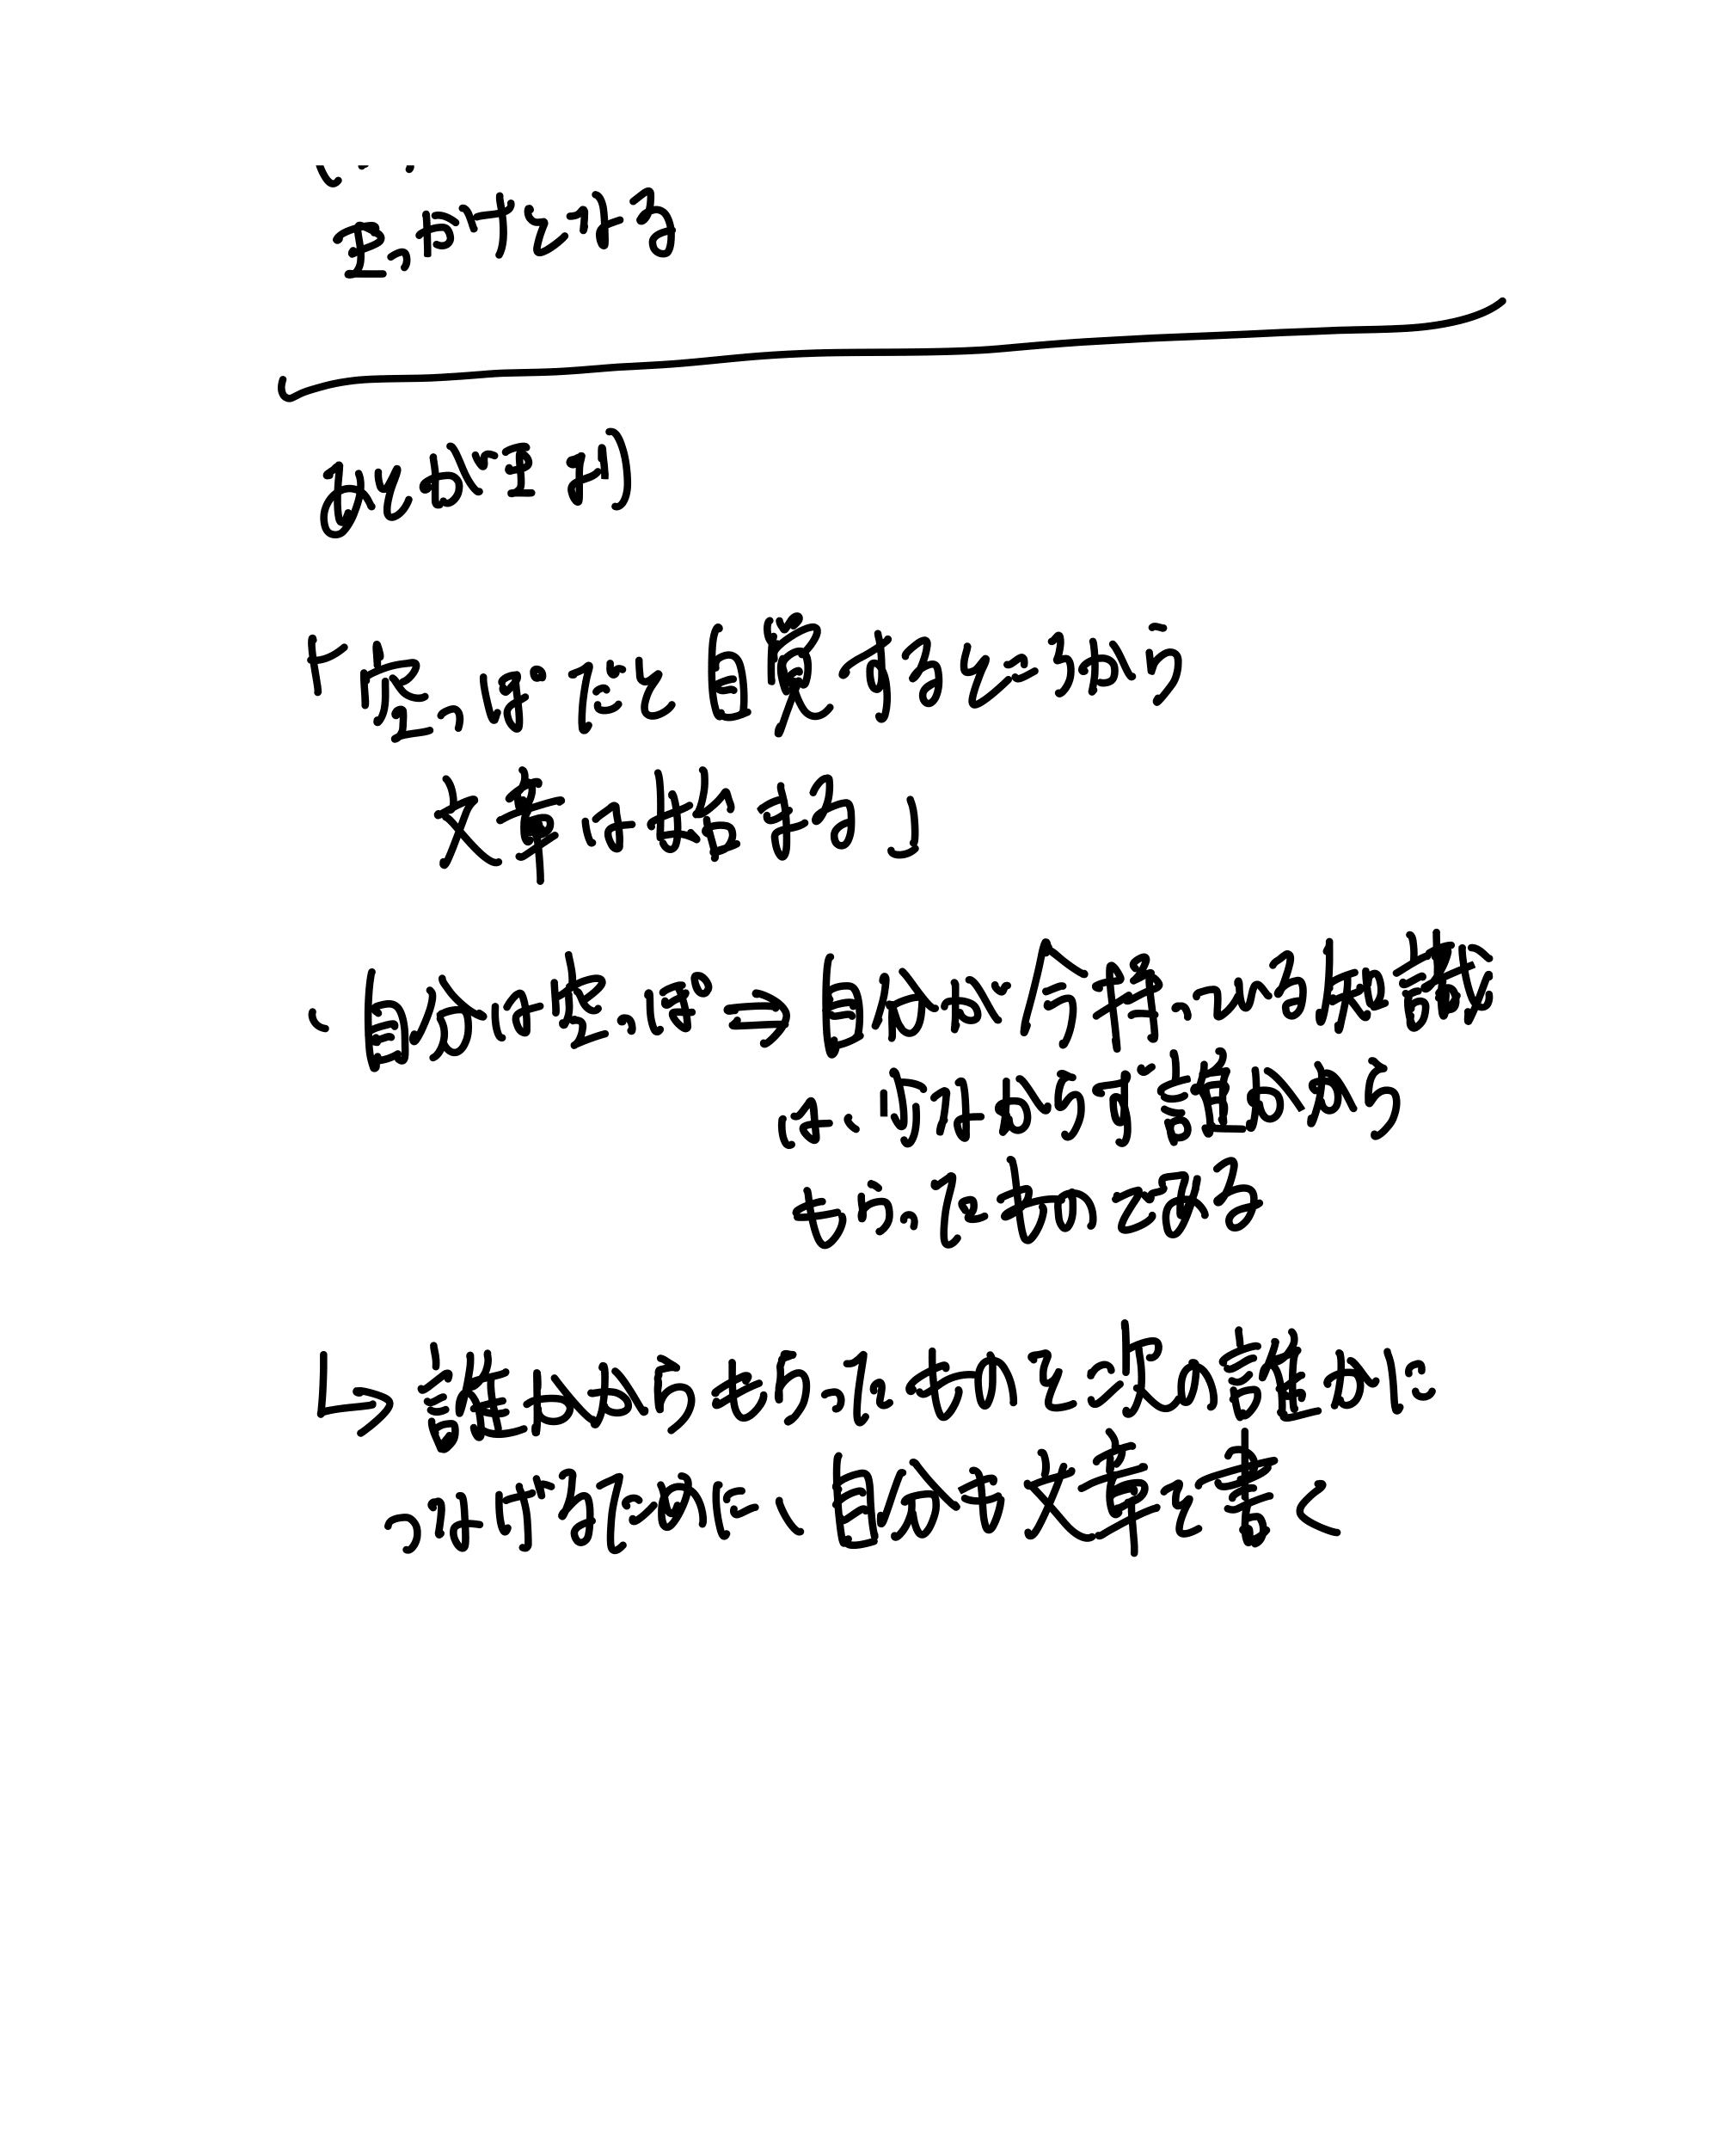 至, かけとなる
「空っぽだと自覚するところから
文章は始まる」
・自分は空っぽ⇒自分が今持っている知識
は、すべから誰かから
もらったものである
↳誰かからもらったものを次の誰かに
つなげるために、自分も文章を書く